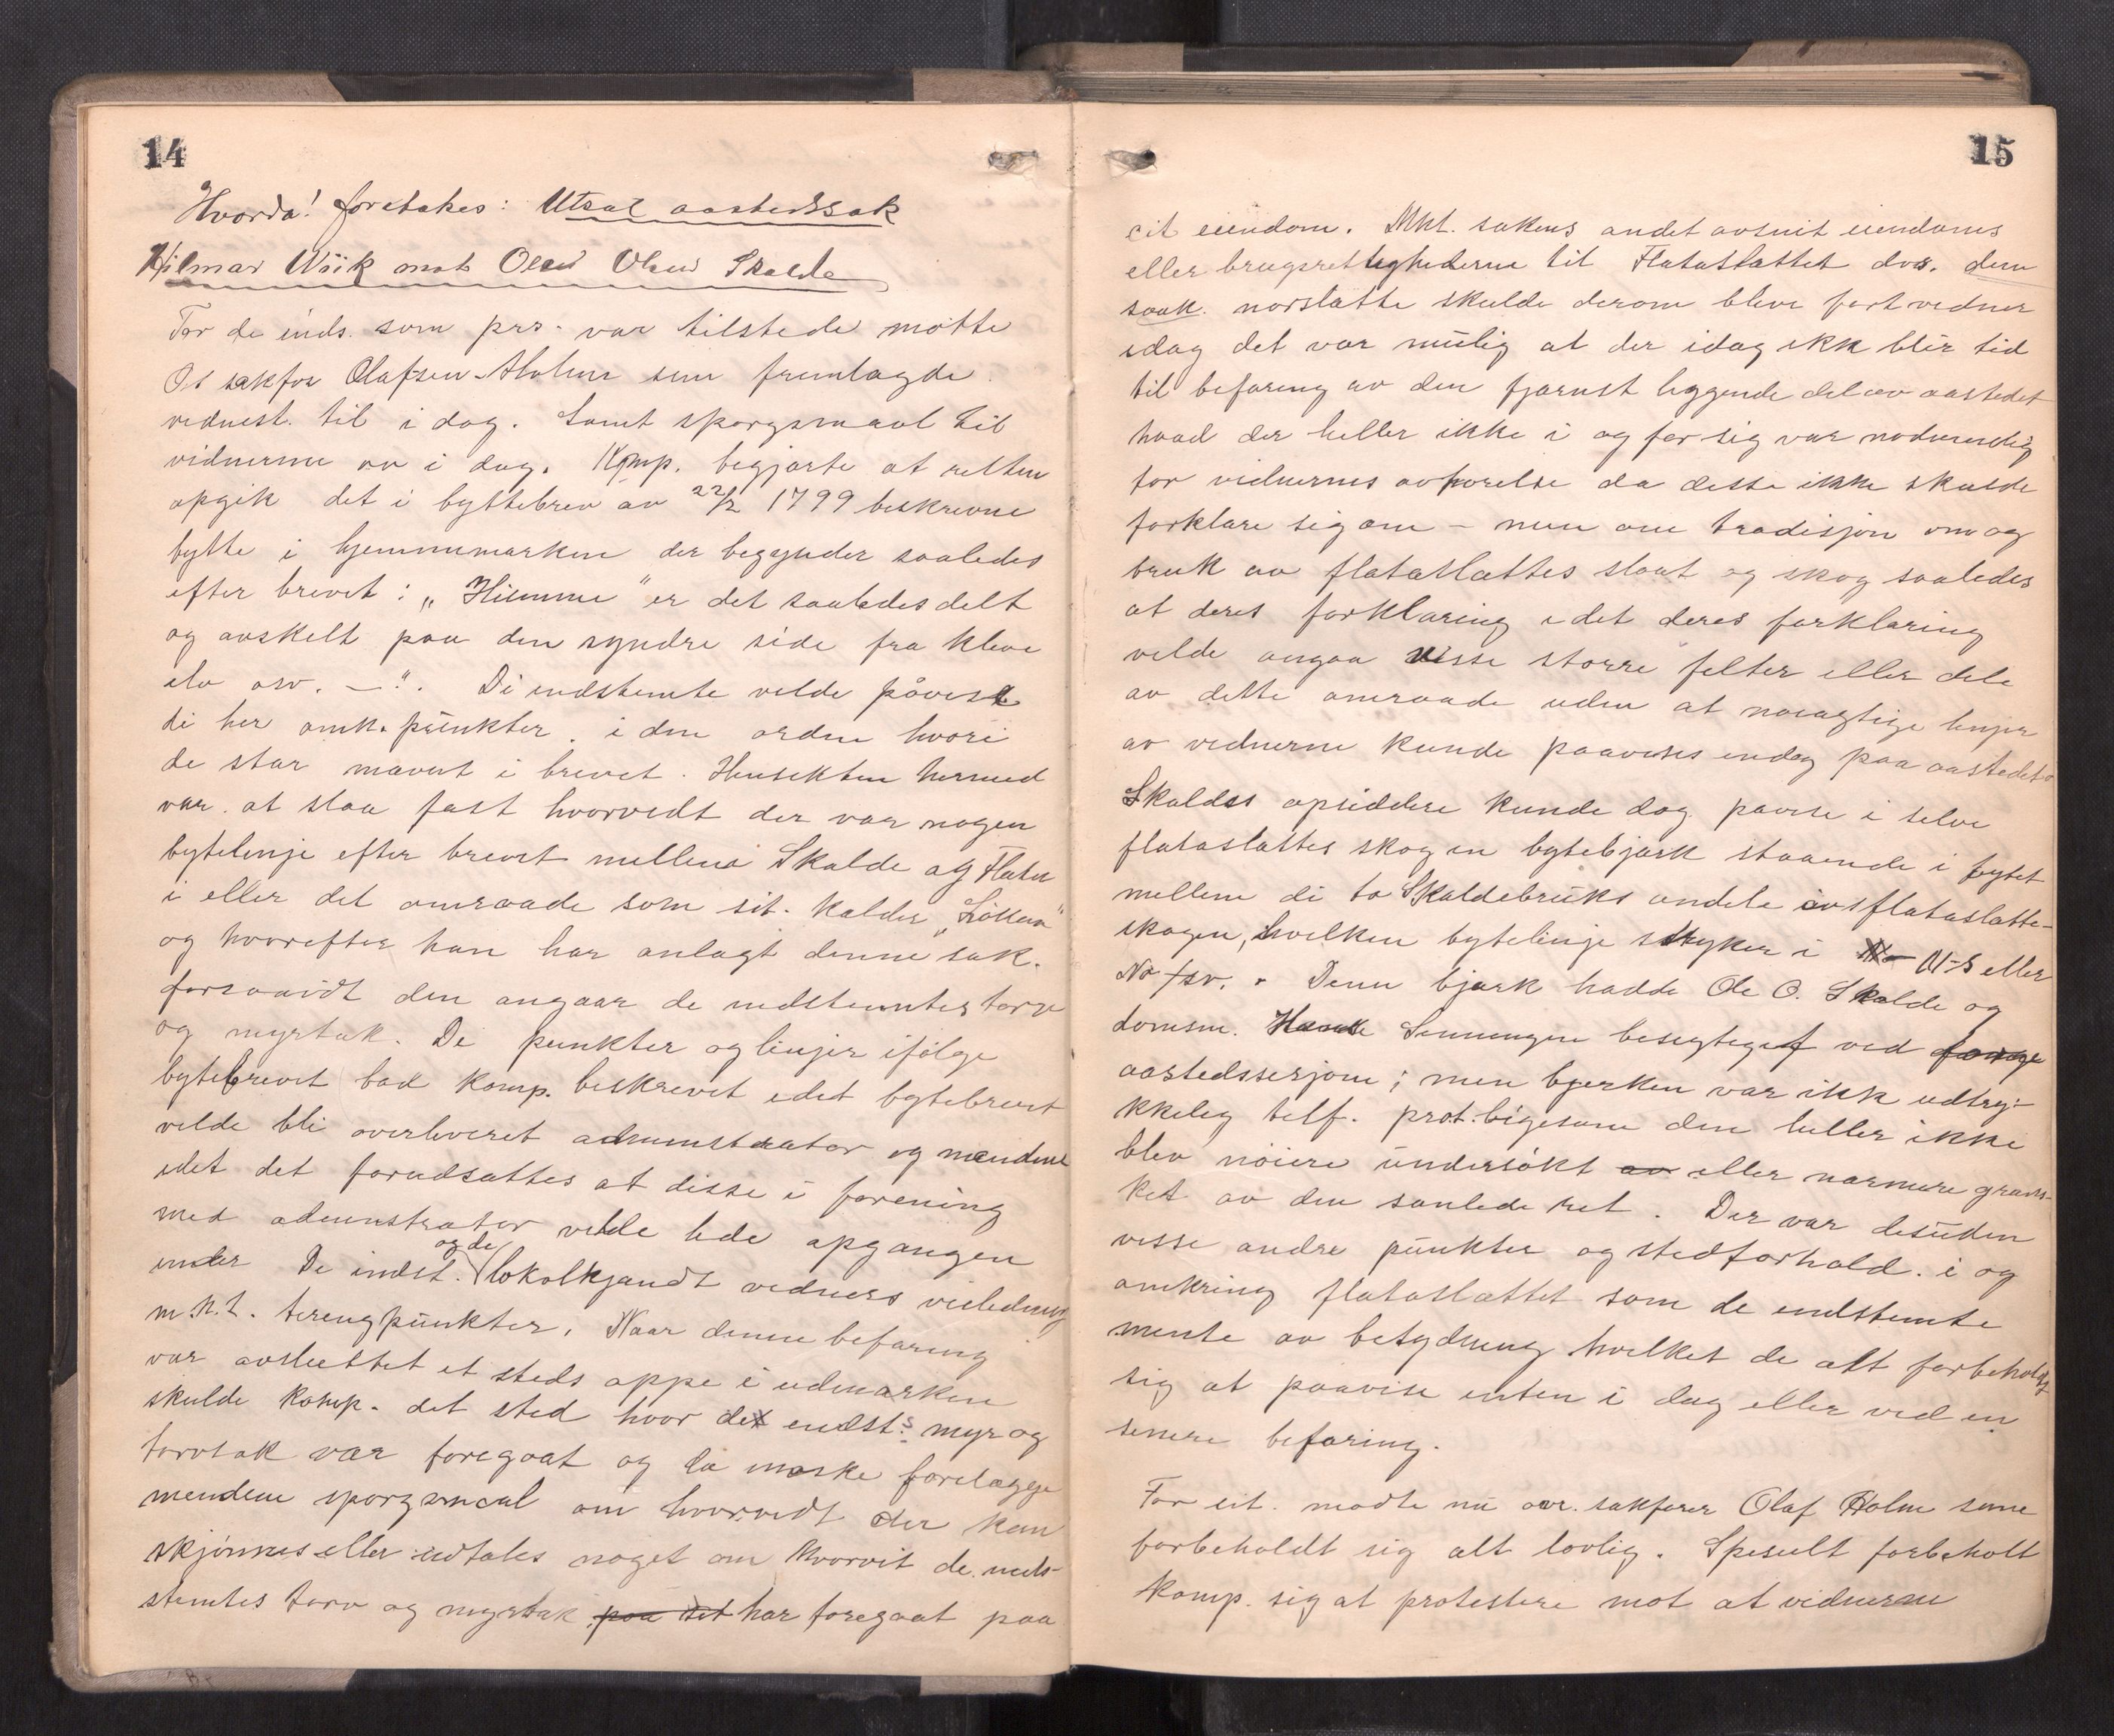 14
Hvorda! foretakes: Utsat aastedssak
Hilmar Wiik mot Olai Olsen Skalde
For de inds. som prs. var tilstede møtte
O.r sakfør Olafsen-Holm som fremlagde
vidnest. til i dag. Samt spørgsmaal til
vidnerne av i dag. Komp. begjærte at retten
opgik det i byttebrev av 22/2 1799 beskrevne
bytte i hjemmemarken der begynder saaledes
efter brevet: „Hiemme" er det saaledes delt
og avskelt paa den syndre side fra kleve
elv osv. —". Di indstemte vilde påvise
di her omh. punkter i den orden hvori
de står nævnt i brevet. Hensikten hermed
var at slaa fast hvorvidt der var nogen
bytelinje efter brevet mellem Skalde og Flaten
i eller det omraade som sit. kalder
og hvorefter han har anlagt denne sak.
forsaavidt den angaar de indstemtes torv
og myrtak. De punkter og linjer ifølge
bytebrevet bad komp. beskrevet idet bytebrevet
vilde bli overleveret administrator og mændene
idet det forudsættes at disse i forening
med administrator vilde lede opgangen
under De indst. og de lokalkjendt vidners veiledning
m.h.t. terengpunkter. Naar denne befaring
var avsluttet et steds oppe i udmarken
skulde komp. det sted hvor de indst.s myr og
torvtak var foregaat og da maske forelægge
mendene spørgsmaal om hvorvidt der kan
skjønnes eller udtales noget om hvorvit de ind-
stemtes torv og myrtak paa det har foregaat paa
15
cit eiendom. Mht. sakens andet avsnit eiendoms
eller brugsrettighederne til Flataslættet dvs. den
saak. norslatte skulde derom bleve ført vidner
idag det var mulig at der idag ikk blir tid
til befaring av den fjærnst liggende del av aastedet
hvad der heller ikke i og for sig var nødvendig
for vidnernes avhørelse da disse ikke skulde
forklare sig om – men om tradisjon om og
bruk av flataslættes slaat og skog saaledes
at deres forklaring idet deres forklaring
vilde angaa visse større felter eller dele
av dette omraade uden at nøiagtige linjer
av vidnerne kunde paavises endog paa aastedet.
Skaldes opsiddere kunde dog pavise i selve
flataslættes skog en bytebjørk staaende i bytet
mellem di to Skaldebruks andele i flataslætte-
skogen, hvilken bytelinje stryker i N-S eller
No/sv. Denne bjørk hadde Ole O. Skalde og
domsm. Sunningen besigtiget ved forrige
aastedssesjon; men bjerken var ikk udtry-
kkelig telf. prot. ligesom den heller ikke
blev nøiere undersøkt av eller nærmere grans-
ket av den samlede ret. Der var desuden
visse andre punkter og stedforhold i og
omkring flataslættet som de indstemte
mente av betydning hvilket de alt forbeholdt
sig at paavise enten i dag eller ved en
senere befaring.
For cit. mødte nu o.r. sakfører Olaf Holm som
forbeholdt sig alt lovlig. Spesielt forbeholt
komp. sig at protestere mot at vidnerne